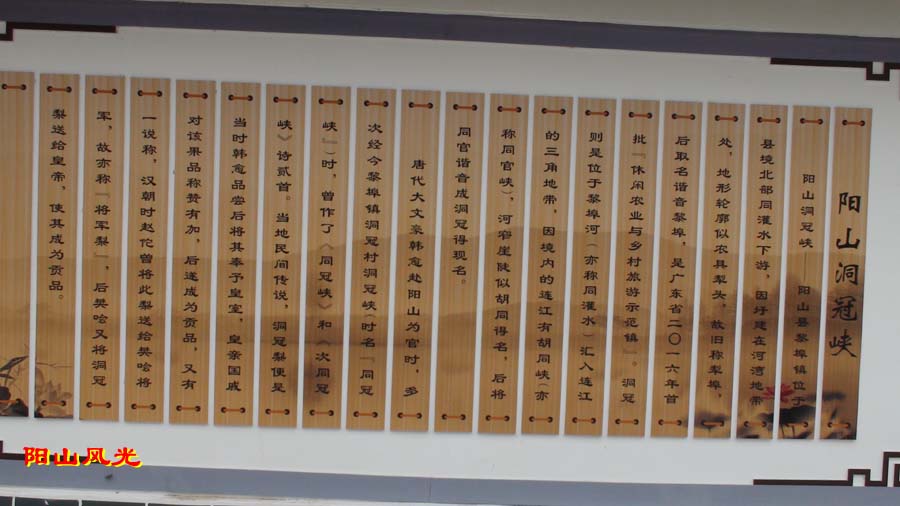 阳山洞冠峡
阳山洞冠峡——阳山县黎埠镇位于
县境北部同灌水下游，因圩建在河湾地带
处，地形轮廓似农具犁头，故旧称犁埠，
后取名谐音黎埠，是广东省二〇一六年首
批『休闲农业与乡村旅游示范镇』。洞冠
则是位于黎埠河（亦称同灌水）汇入连江
的三角地带，因境内的连江有胡同峡（亦
称同官峡），河窄崖陡似胡同得名，后将
同官谐音成洞冠得现名。
唐代大文豪韩愈赴阳山为官时，多
次经今黎埠镇洞冠村洞冠峡（时名『同冠
峡』）时，曾作了《同冠峡》和《次同冠
峡》诗贰首。当地民间传说，洞冠梨便是
当时韩愈品尝后将其奉于皇室，皇亲国戚
对该果品称赞有加，后遂成为贡品，又有
一说称，汉朝时赵佗曾将此梨送给樊哙将
军，故亦称『将军梨』，后樊哙又将洞冠
梨送给皇帝，使其成为贡品。
阳山风光